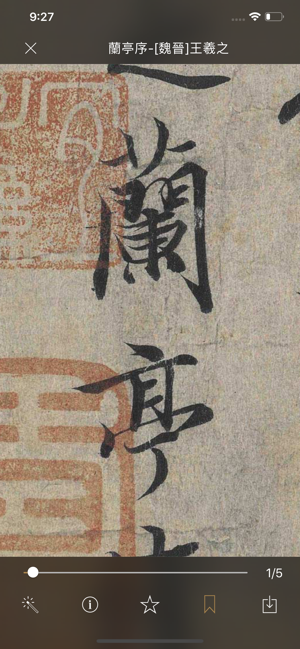 9:27
蘭亭序-[魏晉]王羲之
蘭亭
1/5